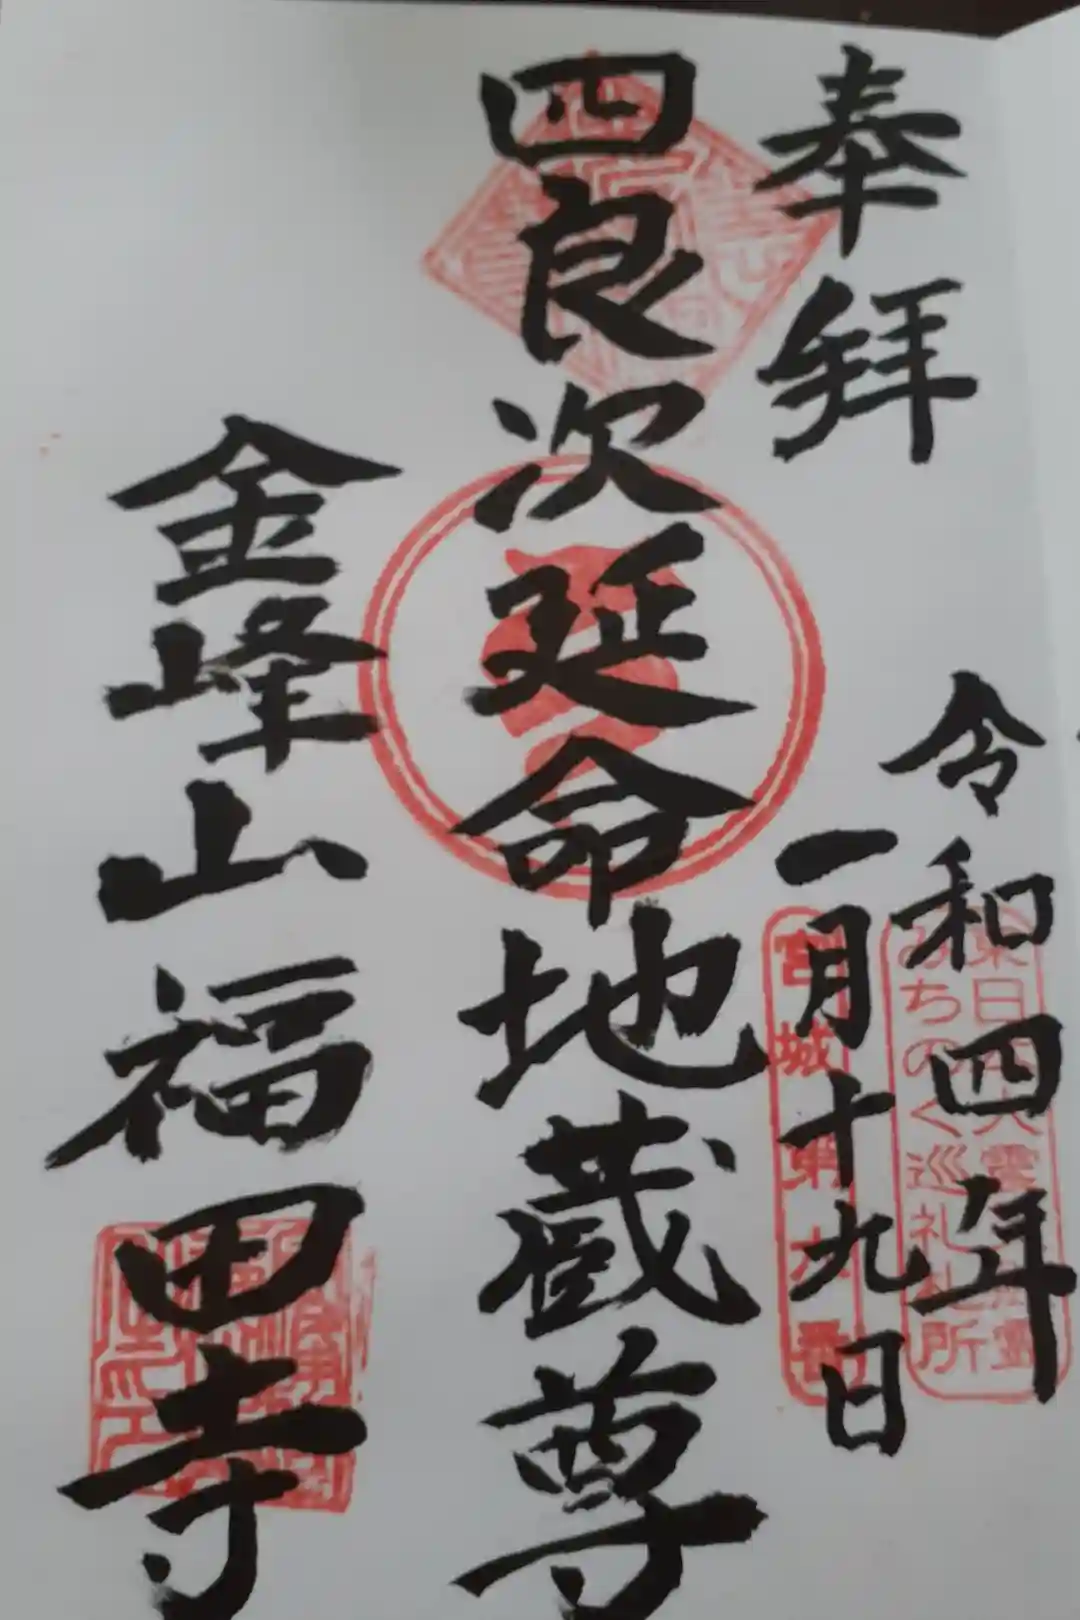 奉拝
令和四年
一月十九日
東日本大震災慰霊
みちのく巡礼札所
宮城第六番
四良次延命地蔵尊
金峰山福田寺